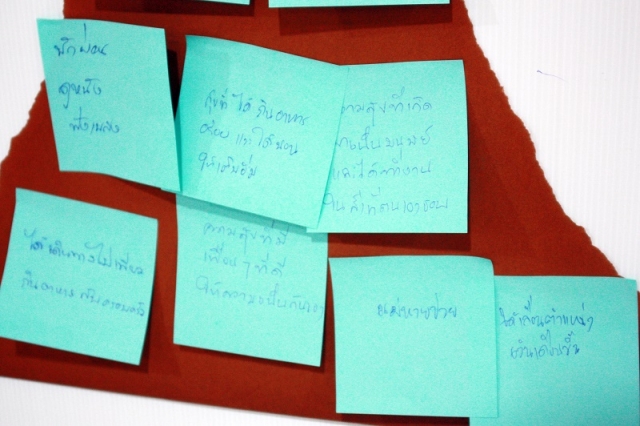 พักผ่อน
ดูหนัง
ฟังเพลง
สุขที่ได้กินอาหาร
อร่อย และได้นอน
ให้เต็มอิ่ม
ความสุขที่เกิด
และได้ทำงาน
ในสิ่งที่ตนเองชอบ
ได้เดินทางไปเที่ยว
กินอาหารกับครอบครัว
ความสุขที่มี
เพื่อนๆ ที่ดี
แม่หายป่วย
ได้เลื่อนตำแหน่ง